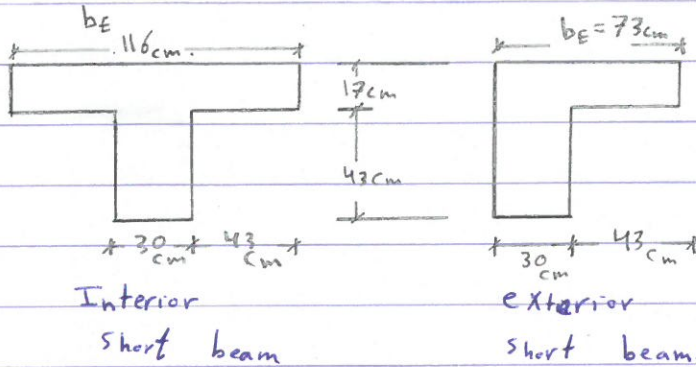 bE
116cm.
bE = 73cm
17cm
43cm
30 cm
43 cm
30 cm
43 cm
Interior
short beam
exterior
short beam